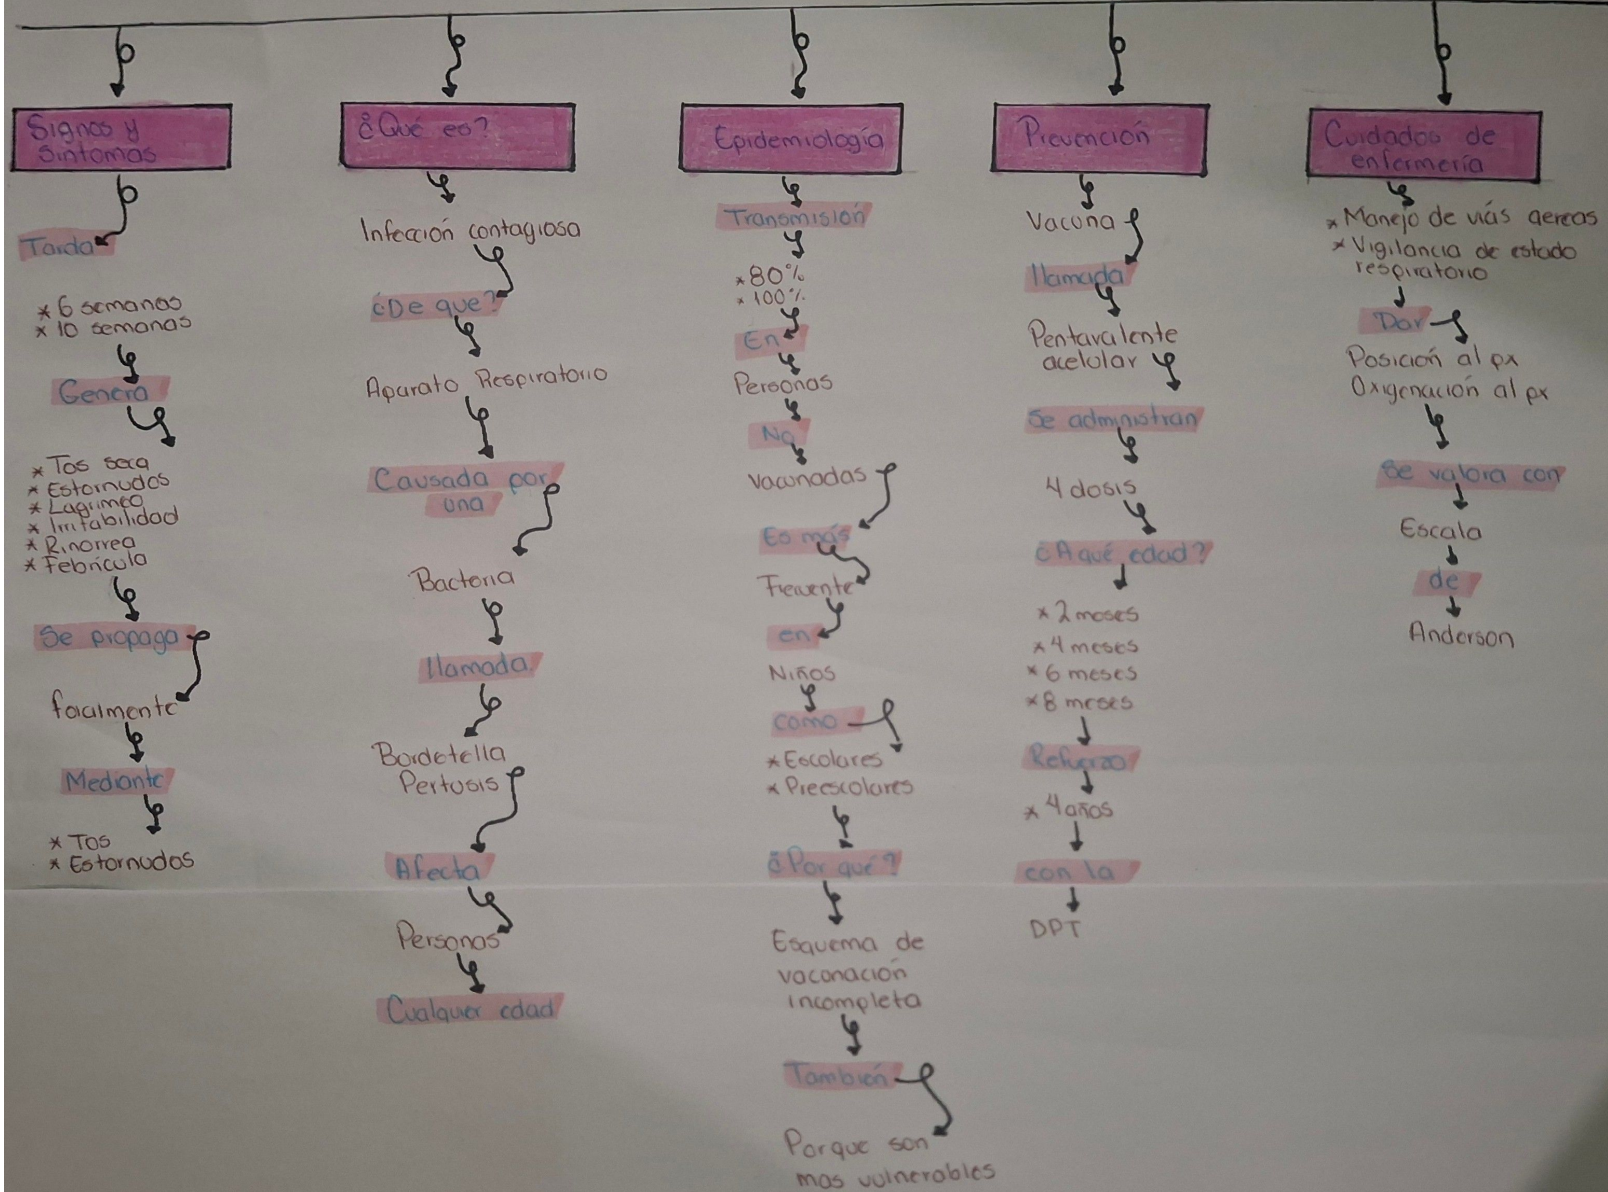 Signos y
Sintomas
Tarda
* 6 semanas
* 10 semanas
Genera
* Tos seca
* Estornudos
* Lagrimeo
* Irritabilidad
* Rinorrea
* Febricula
Se propaga
facilmente
Mediante
* Tos
* Estornudos
¿Qué es?
Infección contagiosa
¿De que?
Aparato Respiratorio
Causada por
una
Bacteria
llamada
Bordetella
Pertusis
Afecta
Personas
Cualquier edad
Epidemiología
Transmisión
* 80%
* 100%
En
Personas
No
Vacunadas
Es más
Frecuente
en
Niños
como
* Escolares
* Preescolares
¿Por qué?
Esquema de
vacunación
incompleta
También
Porque son
mas vulnerables
Prevención
Vacuna
llamada
Pentavalente
acelular
Se administran
4 dosis
¿A qué edad?
* 2 meses
* 4 meses
* 6 meses
* 8 meses
Refuerzo
* 4 años
con la
DPT
Cuidados de
enfermería
* Manejo de viás aereas
* Vigilancia de estado
respiratorio
Dar
Posición al px
Oxigenación al px
Se valora con
Escala
de
Anderson